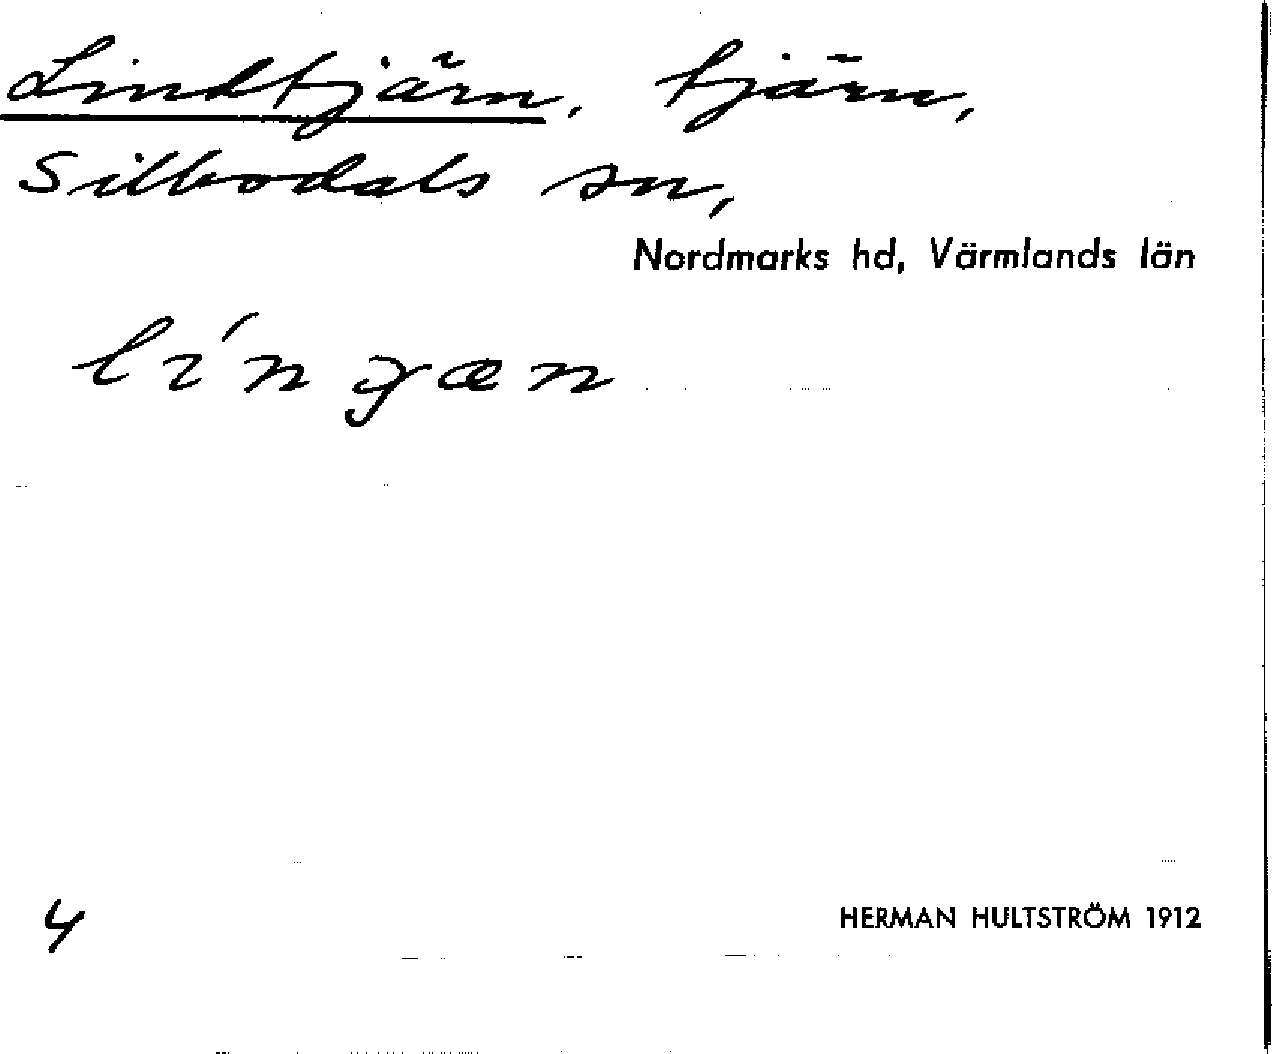 Lindtjärn, tjärn,
Silbodals sn,
Nordmarks hd, Värmlands län
4
HERMAN HULTSTRÖM 1912